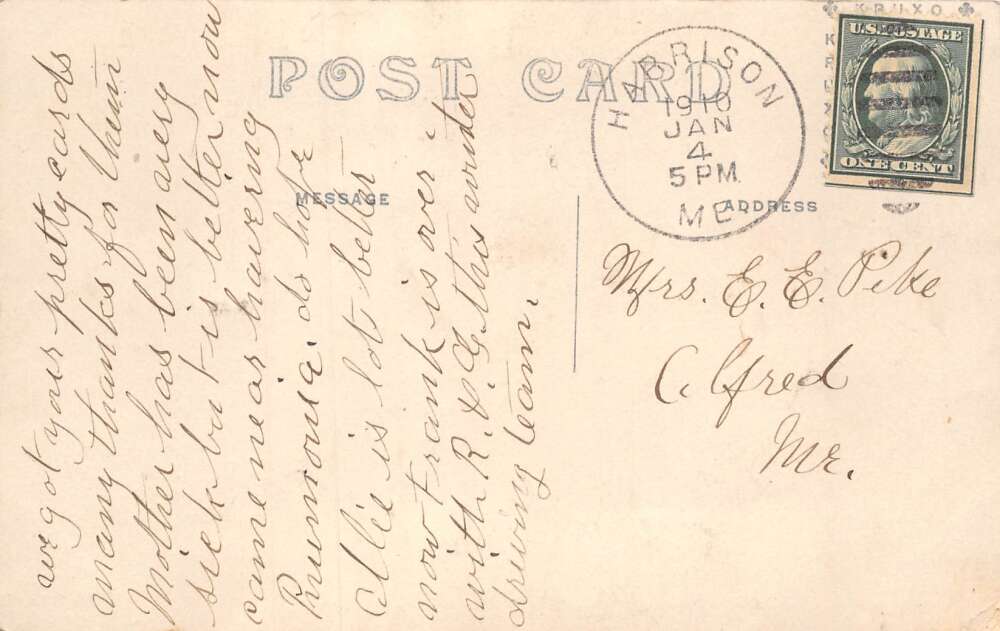 POST CARD
MESSAGE
ADDRESS
KRUXO
KRUXO
U.S. POSTAGE
ONE CENT
HARRISON
1910
JAN
4
5 PM
ME
we got your pretty cards
many thanks for them
Mother has been very
sick but is better now
came near haveing
Pnumonia. do hope
Allie is lots better
now Frank is over
with R. & G this winter
driving team.
Mrs. E. E. Pike
Alfred
Me.